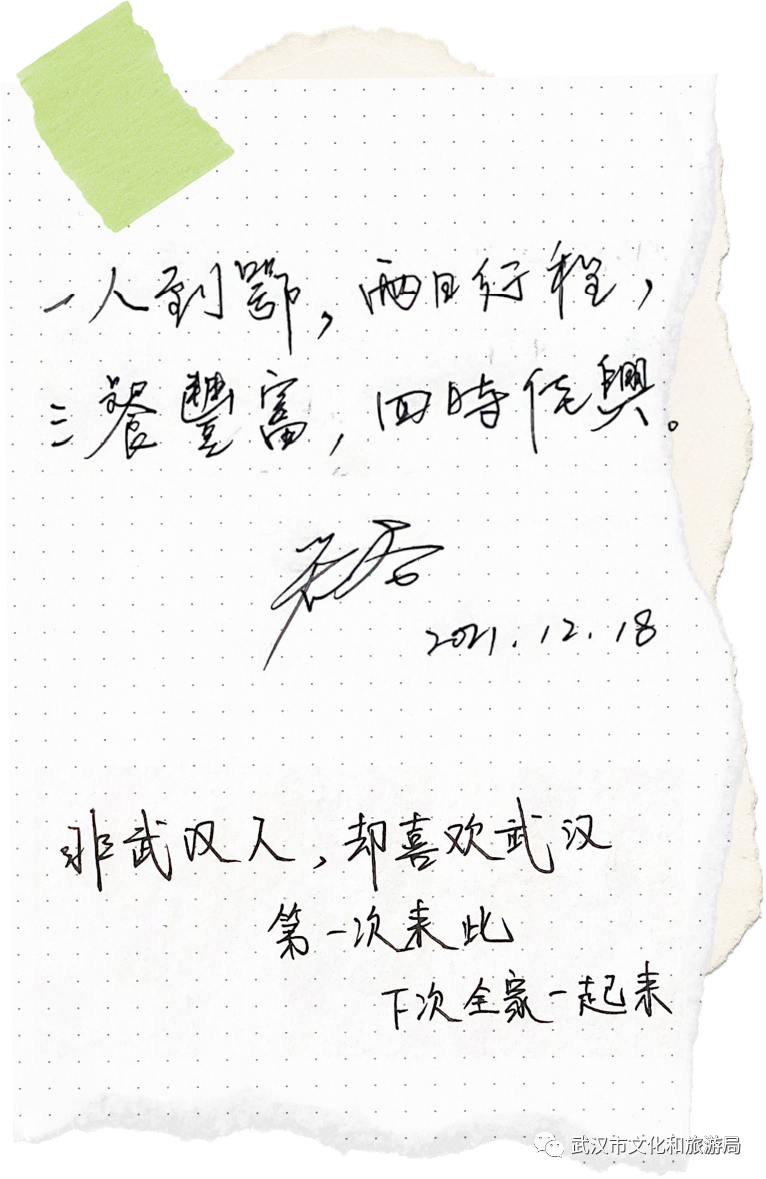 一人到鄂，两日行程，
三餐豐富，四時佳興。
2021.12.18
非武汉人，却喜欢武汉
第一次来此
下次全家一起来
武汉市文化和旅游局